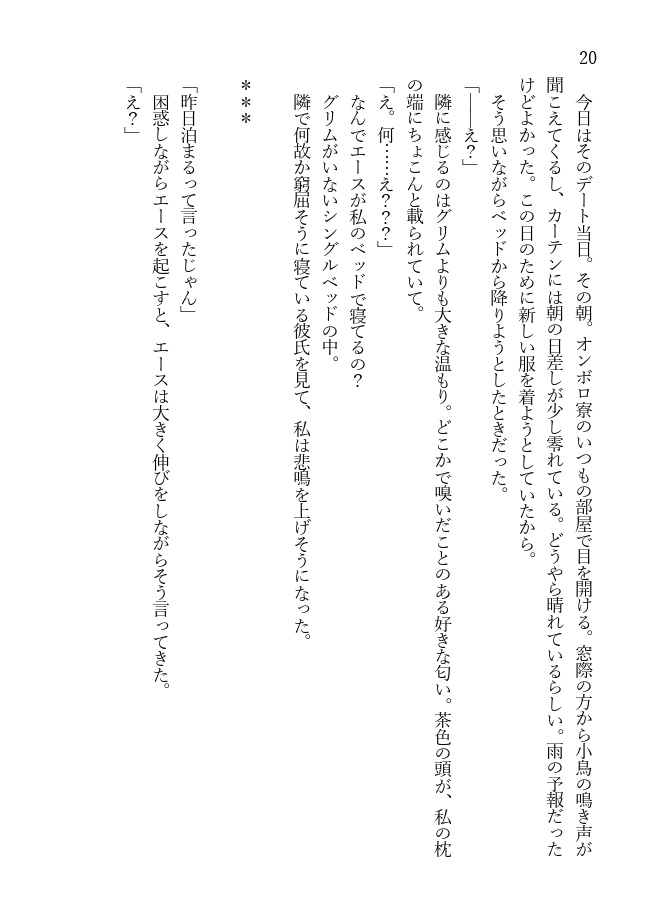 20
今日はそのデート当日。その朝。オンボロ寮のいつもの部屋で目を開ける。窓際の方から小鳥の鳴き声が
聞こえてくるし、カーテンには朝の日差しが少し零れている。どうやら晴れているらしい。雨の予報だった
けどよかった。この日のために新しい服を着ようとしていたから。
そう思いながらベッドから降りようとしたときだった。
「――え？」
隣に感じるのはグリムよりも大きな温もり。どこかで嗅いだことのある好きな匂い。茶色の頭が、私の枕
の端にちょこんと載られていて。
「え。何……え？？？」
なんでエースが私のベッドで寝てるの？
グリムがいないシングルベッドの中。
隣で何故か窮屈そうに寝ている彼氏を見て、私は悲鳴を上げそうになった。
＊＊＊
「昨日泊まるって言ったじゃん」
困惑しながらエースを起こすと、エースは大きく伸びをしながらそう言ってきた。
「え？」